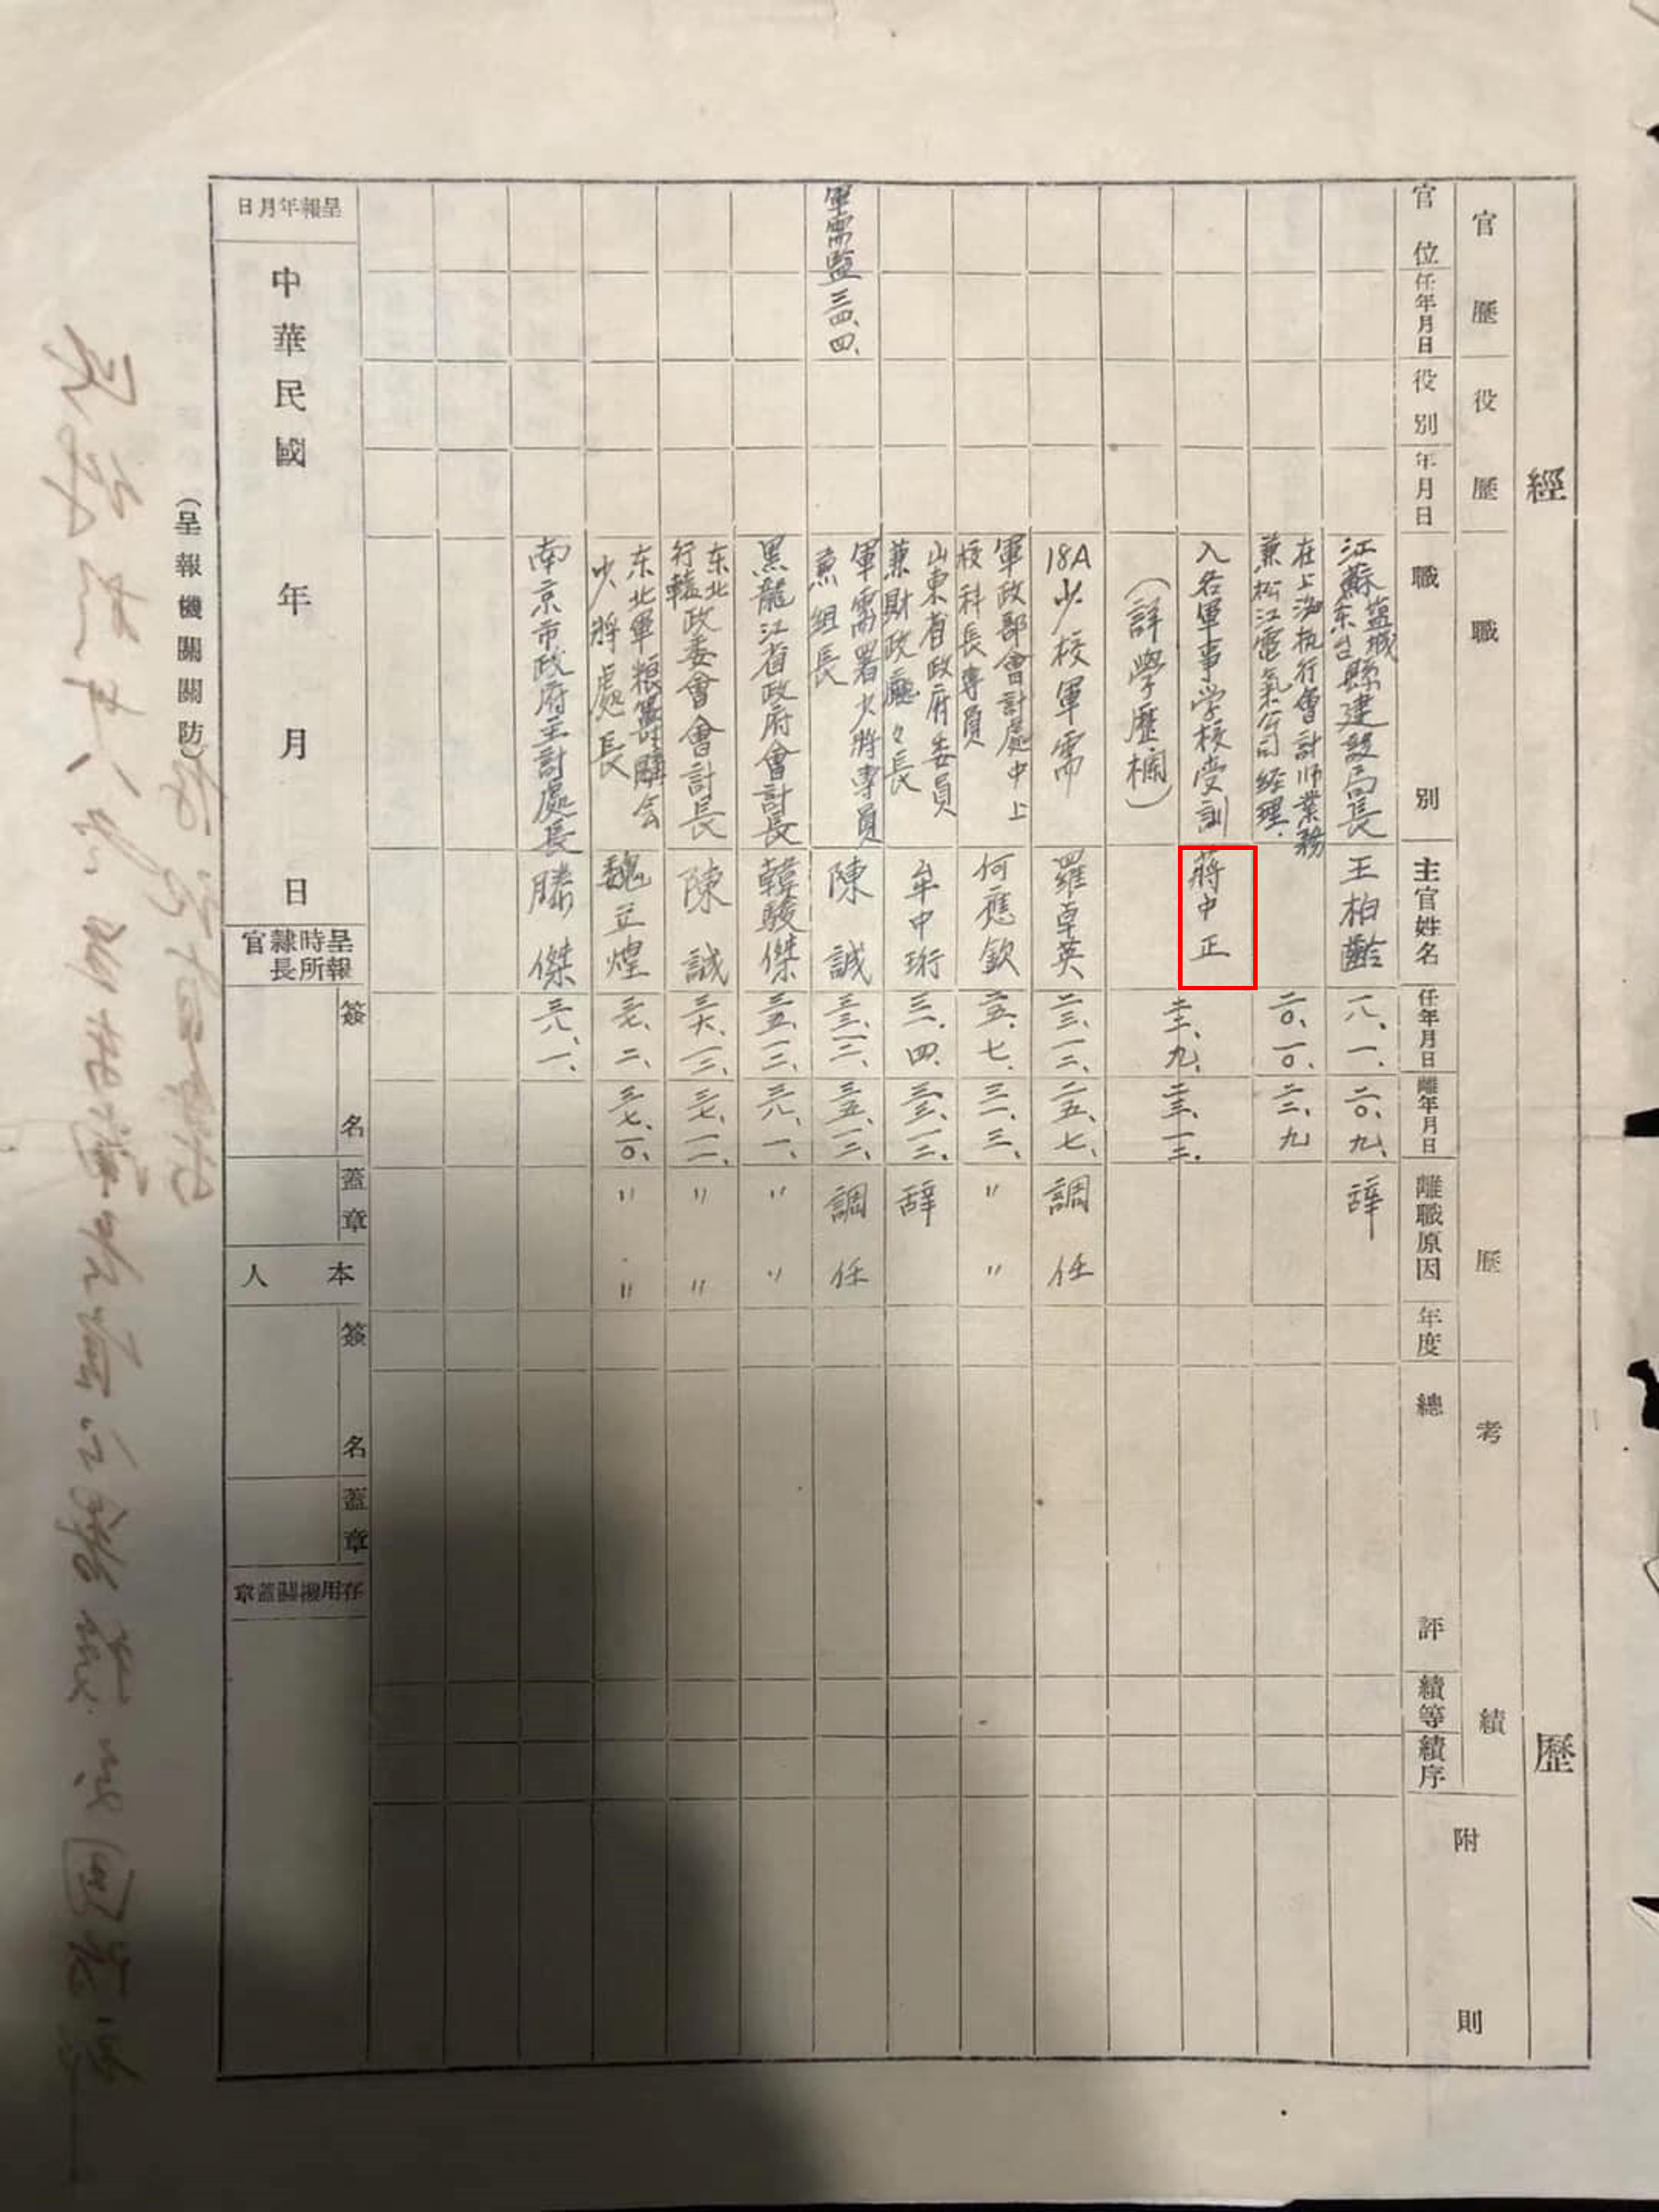 經歷
官歷
役歷
職歷
考績
附則
官位
任年月日
役別
年月日
職別
主官姓名
任年月日
離年月日
離職原因
年度
總評
績等
績序
江蘇鹽城
东台縣建設局長
王柏齡
一八、一、
二〇、九、
辞
在上海执行會計师業務
兼松江電氣公司经理、
二〇、一〇、
二二、九
入各軍事学校受訓
(詳學歷欄)
蔣中正
二二、九、
二三、一二、
18A少校軍需
羅卓英
二三、一二、
二五、七、
調任
軍政部會計處中上
校科長專員
何應欽
二五、七、
三一、三、
〃〃
山東省政府委員
兼財政廳々長
牟中珩
三一、四、
三三、一二、
辞
軍需監
三四、四、
軍需署少將專員
兼組長
陳誠
三三、一二、
三五、一二、
調任
黑龍江省政府會計長
韓駿傑
三五、一二、
三六、一、
〃〃
东北
行轅政委會會計長
陳誠
三六、一二、
三七、一一、
〃〃
东北軍粮籌購会
少將處長
魏立煌
三七、二、
三七、一〇、
〃〃
南京市政府主計處長
滕傑
三八、一、
呈報年月日
中華民國 年 月 日
呈報時所隸官長
簽名
蓋章
本人
簽名
蓋章
存用機關蓋章
(呈報機關關防)